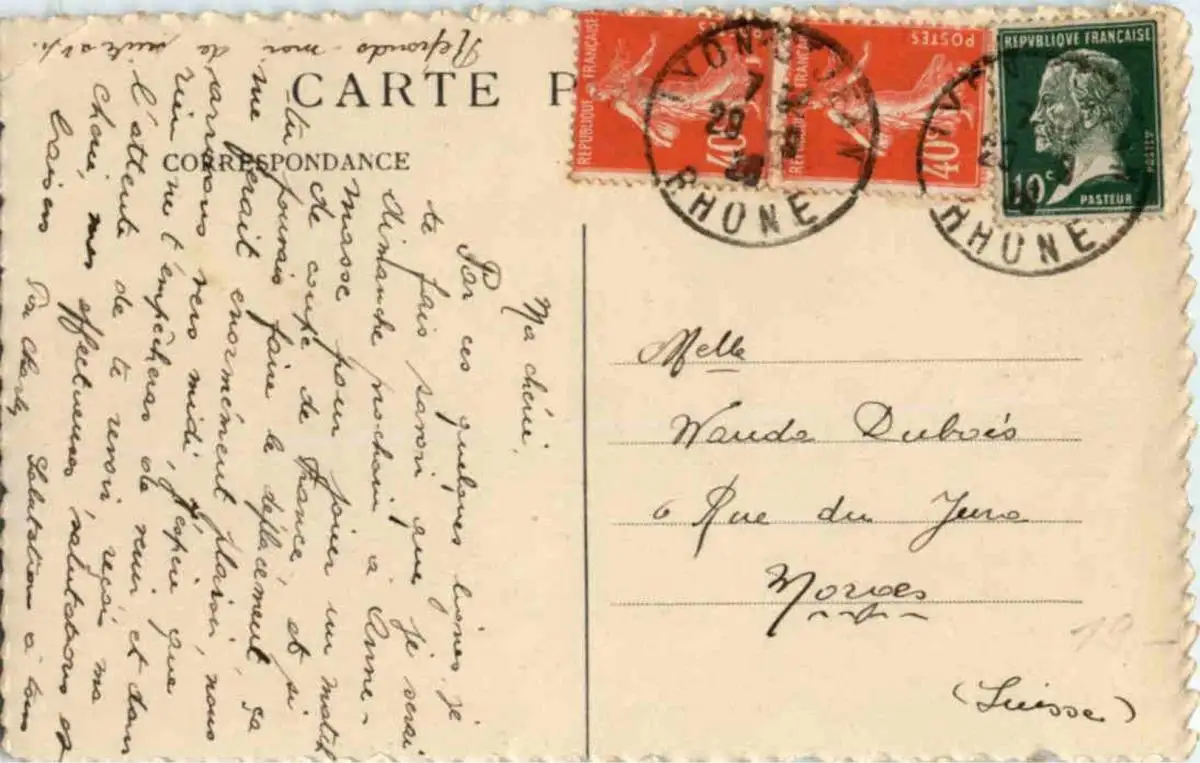 CARTE P
CORRESPONDANCE
REPUBLIQUE FRANÇAISE
POSTES
40c
REPUBLIQUE FRANÇAISE
POSTES
40c
REPVBLIQVE FRANÇAISE
POSTES
10c
PASTEUR
LYON
7
29
RHONE
RHONE
Ma chérie,
Par ces quelques lignes, je
te fais savoir que je serai
dimanche prochain à Anne-
masse pour jouer un match
de coupe de France, et si
tu pouvais faire le déplacement, ça
me ferait enormément plaisir, nous
arrivons vers midi, j'espère que
rien ne t'empêchera de venir et dans
l'attente de te revoir reçois ma
chérie, mes affectueuses salutations et
baisers
Ton Charly Salutations à tous
Reponds-moi de suite s.v.p.
Melle
Wanda Dubois
6 Rue du Jura
Morges
(Suisse)